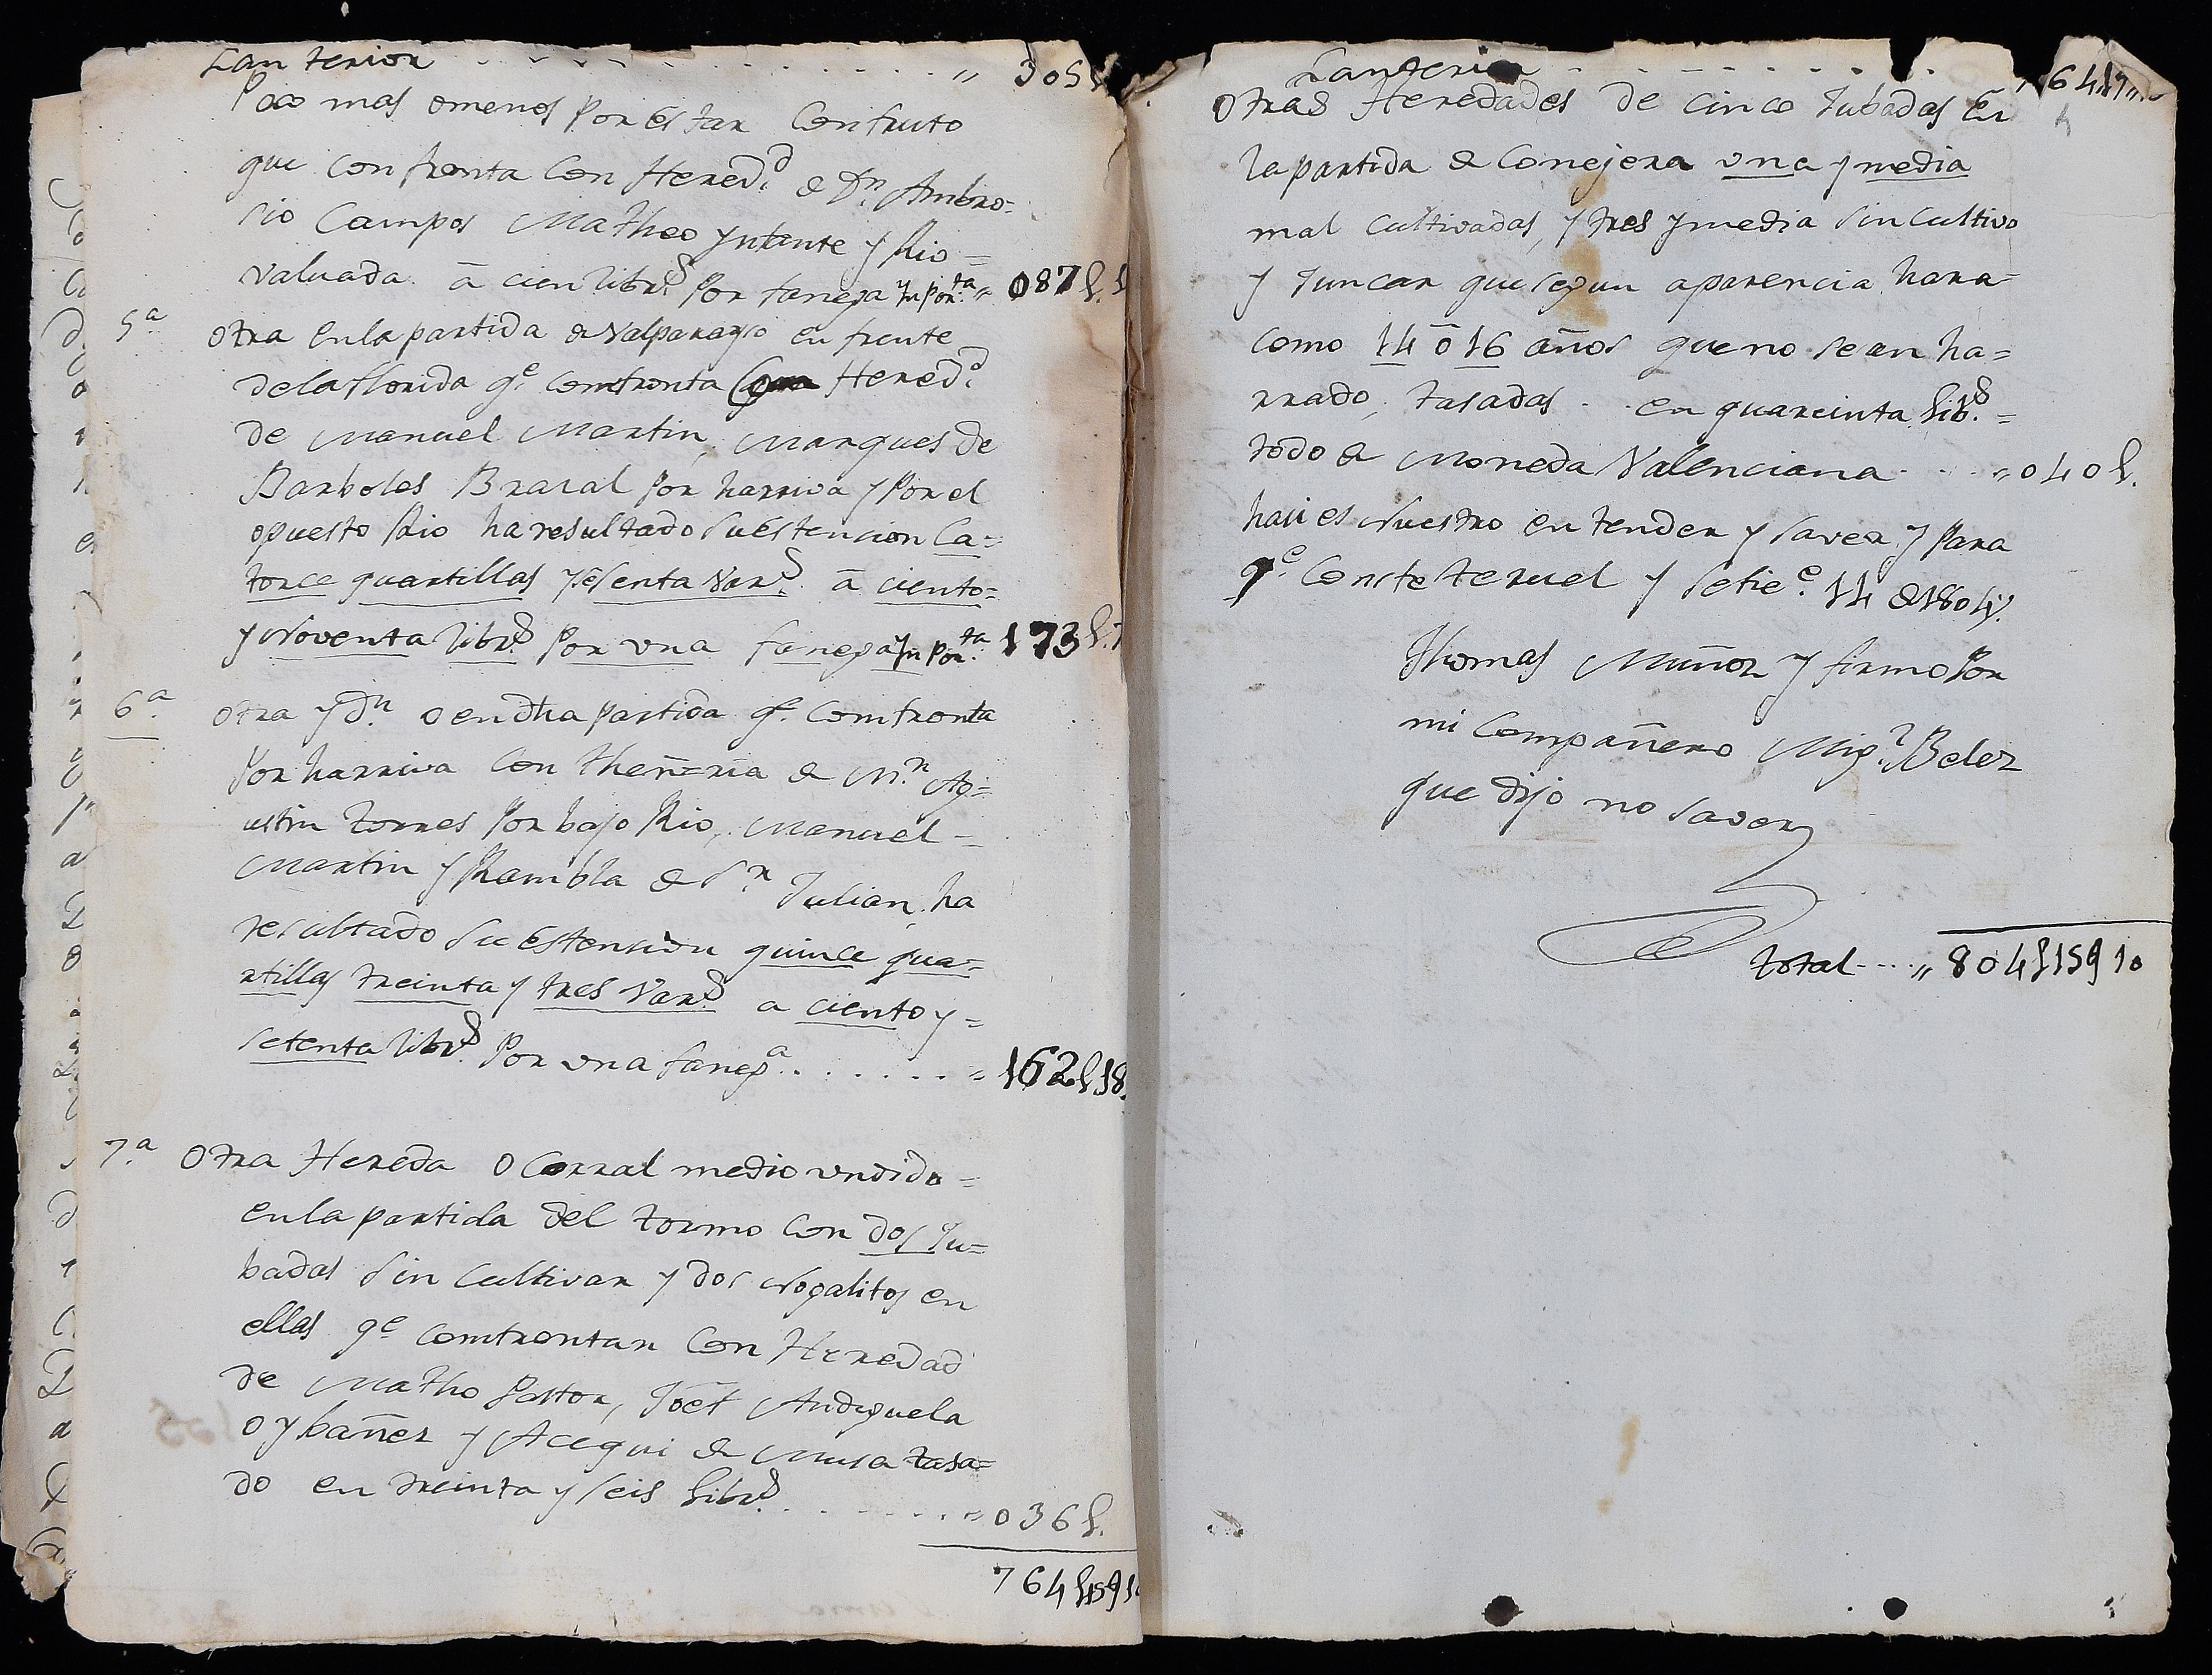 Lanterior . . . . . . . . . . . . . " 305L
Poco mas omenos por estar Confruto
que confronta Con Hered.d de Dn. Ambro=
sio Campos Matheo ynfante y Rio=
valuada â cien libr.s por fanega ynpor.ta " 087L.
5.a otra enla partida de Valparayso en frente
delaflorida q.e comfronta Con Hered.d
de Manuel Martin, Marques de
Barboles Brazal por harriva y por el
opuesto Rio ha resultado su estencion Ca=
torce quartillas y sesenta Var.s â ciento=
y Noventa libr.s por una fanega ynpor.ta 173L.
6.a otra yd.n o en dha partida q.e Comfronta
por harriva Con theñeria de M.n Ag=
ustin torres por bajo Rio, Manuel=
Martin y Rambla de S.n Julian, ha
resultado su estencion quince qua=
rtillas treinta y tres Var.s a ciento y=
setenta libr.s por una faneg.a . . . . . . . " 162L18
7.a otra Hereda o Corral medio undido=
enla partida del tormo Con dos Ju=
badas sin Cultivar y dos Nogalitos en
ellas q.e comfrontan Con Heredad
de Matho Pastor, Joēf Andiguela
o ybañez y Acequi de Musa tasa=
do en treinta y seis libr.s . . . . . . . " 036L.
764L15910
Lanterior . . . . . . . . . 764L
otras Heredades de cinco Jubadas en
la partida de Conejera una y media
mal cultivadas, y tres y media sin Cultivo
y Juncar que segun aparencia hara=
como 14 ō 16 años que no se an ha=
rrado, tasadas . . en quareinta Lib.s=
todo de Moneda Valenciana . . . " 040L.
haci es Nuestro entender y saver y para
q.e Conste teruel y Setie.e 14 de 1804.
Thomas Muñoz y firmo por
mi Compañero Mig.l Belez
que dijo no saver
total . . . " 804L15910